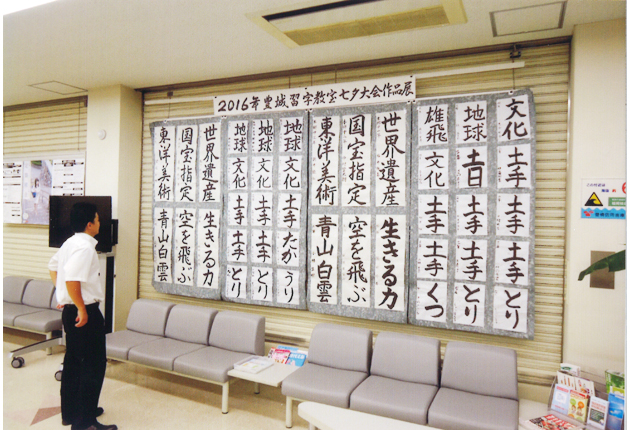 2016年 豊城習字教室七夕大会作品展
文化 土手 土手 土手 とり
地球 土日 土手 土手 とり
雄飛 文化 土手 土手 くつ
世界遺産
国宝指定
東洋美術
生きる力
空を飛ぶ
青山白雲
地球 文化 土手 たか うり
地球 文化 土手 土手 とり
地球 文化 土手 土手 とり
世界遺産
国宝指定
東洋美術
生きる力
空を飛ぶ
青山白雲